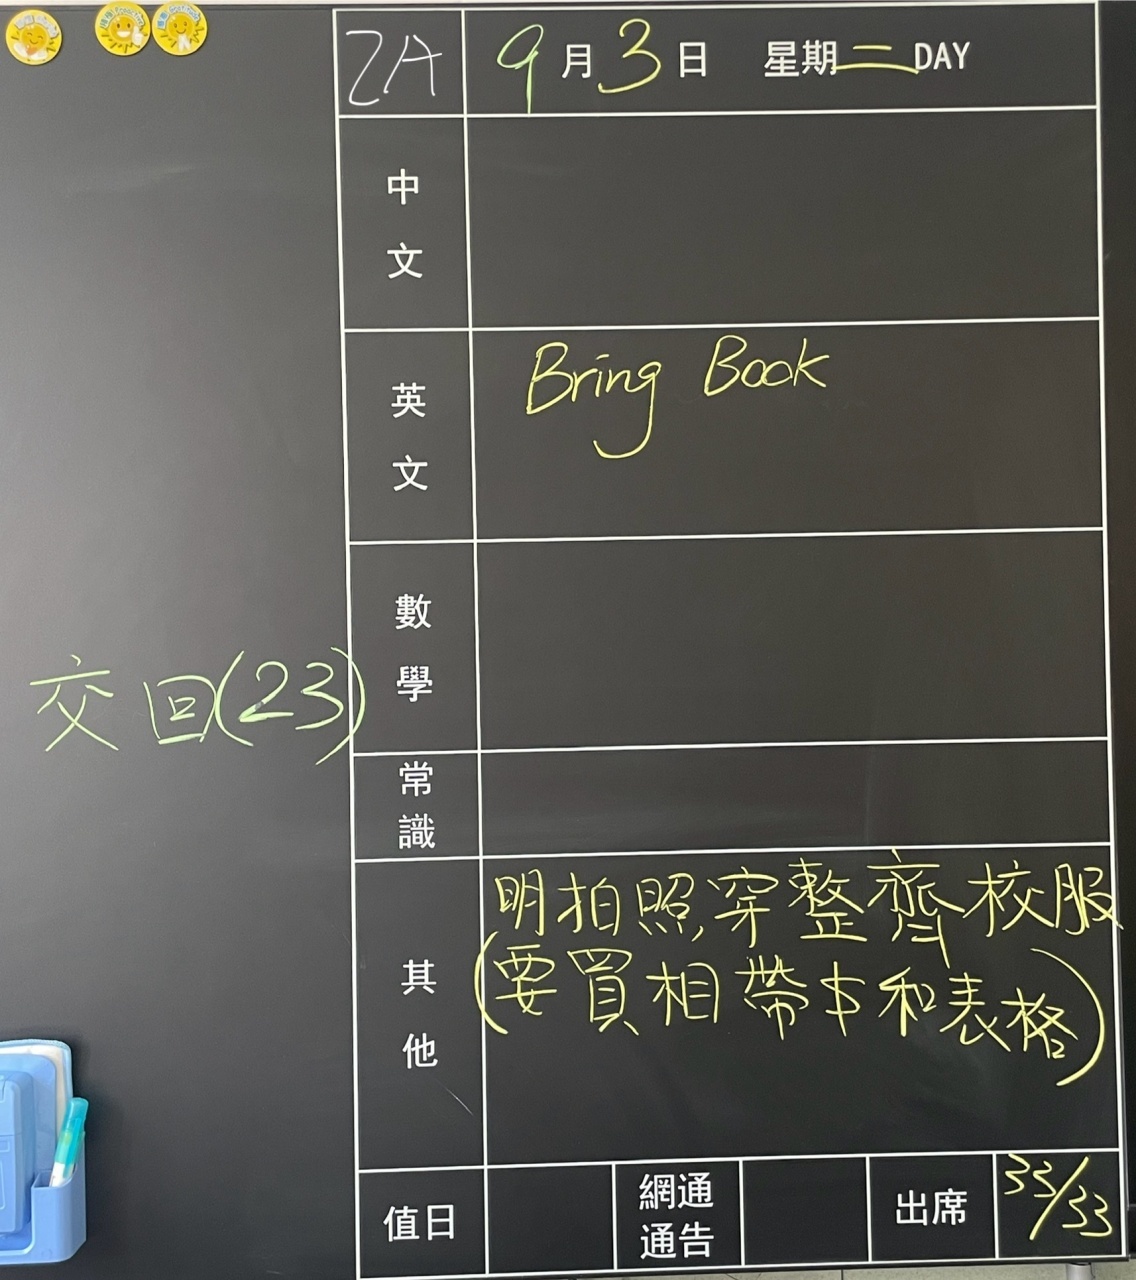 2A 9月3日 星期二DAY
中文
英文 Bring Book
數學
交回(23)
常識
其他 明拍照,穿整齊校服
(要買相帶$和表格)
值日 網通通告 出席 33/33